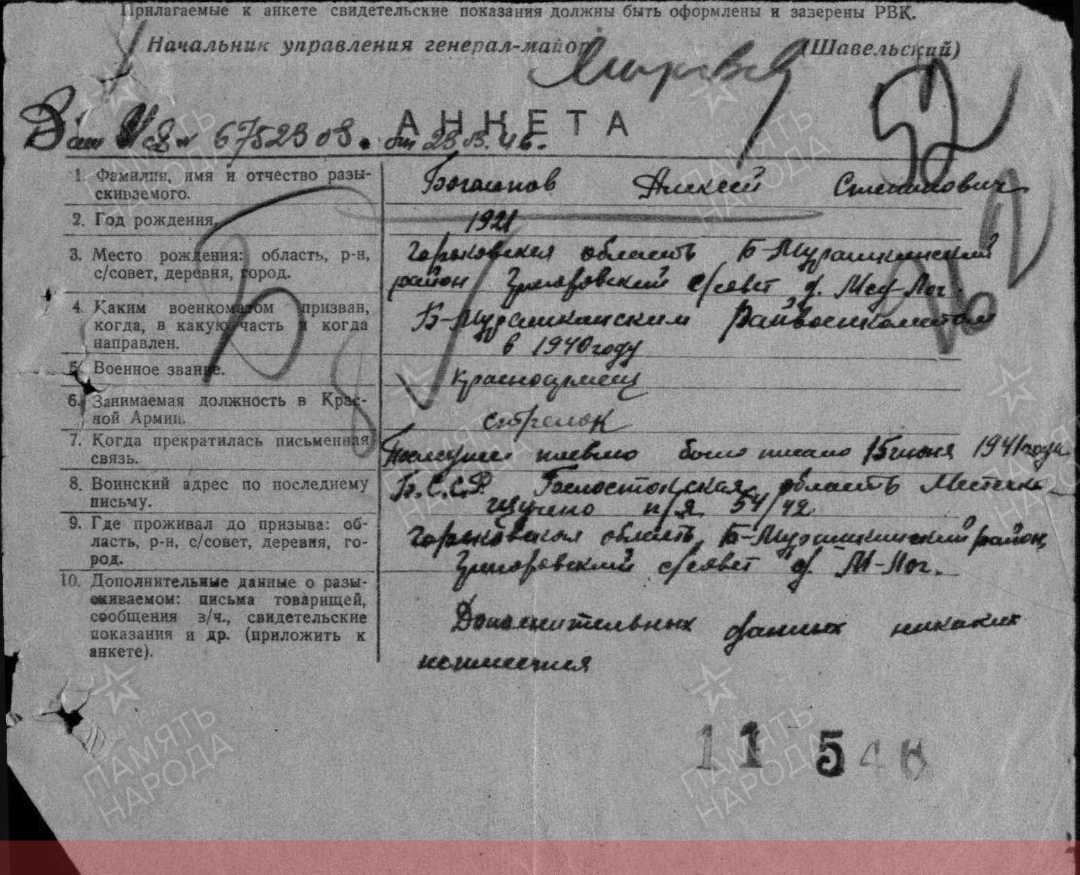 Прилагаемые к анкете свидетельские показания должны быть оформлены и заверены РВК.
Начальник управления генерал-майор (Шавельский)
52
АНКЕТА
Зап Ув № 6752303. от 23.II.46.
1. Фамилия, имя и отчество разыскиваемого. Алексей Степанович
2. Год рождения. 1921
3. Место рождения: область, р-н, Горьковская область Б-Мурашкинский
с/совет, деревня, город. район Григоровский с/совет д. Мед-Лог
4. Каким военкоматом призван, Б-Мурашкинским Райвоенкоматом
когда, в какую часть и когда
направлен. в 1940 году
5. Военное звание. Красноармеец
6. Занимаемая должность в Крас-
ной Армии. стрелок
7. Когда прекратилась письменная Последнее письмо было писано 15 июня 1941 года
связь.
8. Воинский адрес по последнему Б.С.С.Р. область Местечко
письму. п/я 54/42
9. Где проживал до призыва: об- Горьковская область, Б-Мурашкинский район,
ласть, р-н, с/совет, деревня, го- Григоровский с/совет д. М-Лог.
род.
10. Дополнительные данные о разы-
скиваемом: письма товарищей, Дополнительных данных никаких
сообщения з/ч., свидетельские
показания и др. (приложить к неимеется
анкете).
11 548
ПАМЯТЬ
НАРОДА